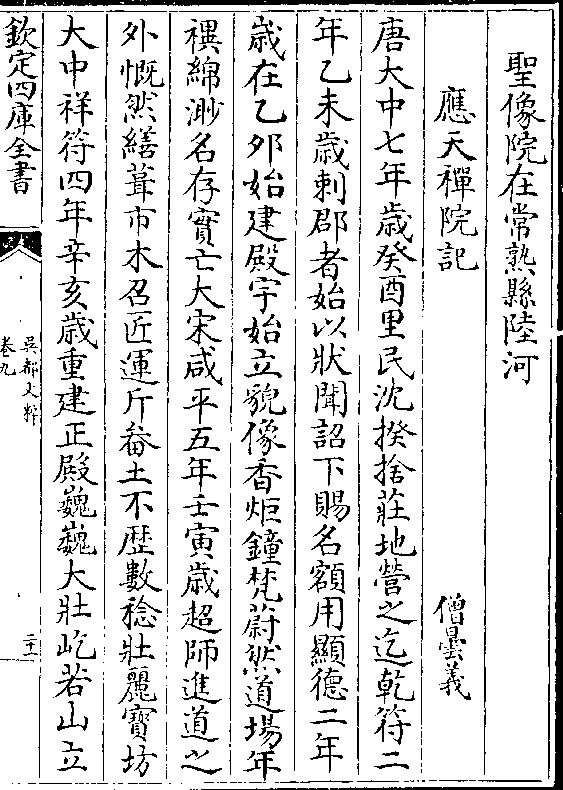 聖像院在常熟縣陸河
應天禪院記 僧曇義
唐大中七年歲癸酉里民沈揆捨莊地營之迄乾符二
年乙未歲刺郡者始以狀聞詔下賜名額用顯德二年
歲在乙夘始建殿宇始立貌像香炬鐘梵蔚然道場年
禩綿渺名存實亡大宋咸平五年壬寅歲超師進道之
外慨然繕葺市木召匠運斤畚土不歴數稔壯麗寶坊
大中祥符四年辛亥歲重建正殿巍巍大壯屹若山立
欽定四庫全書
吳都文粹
卷九
二十一